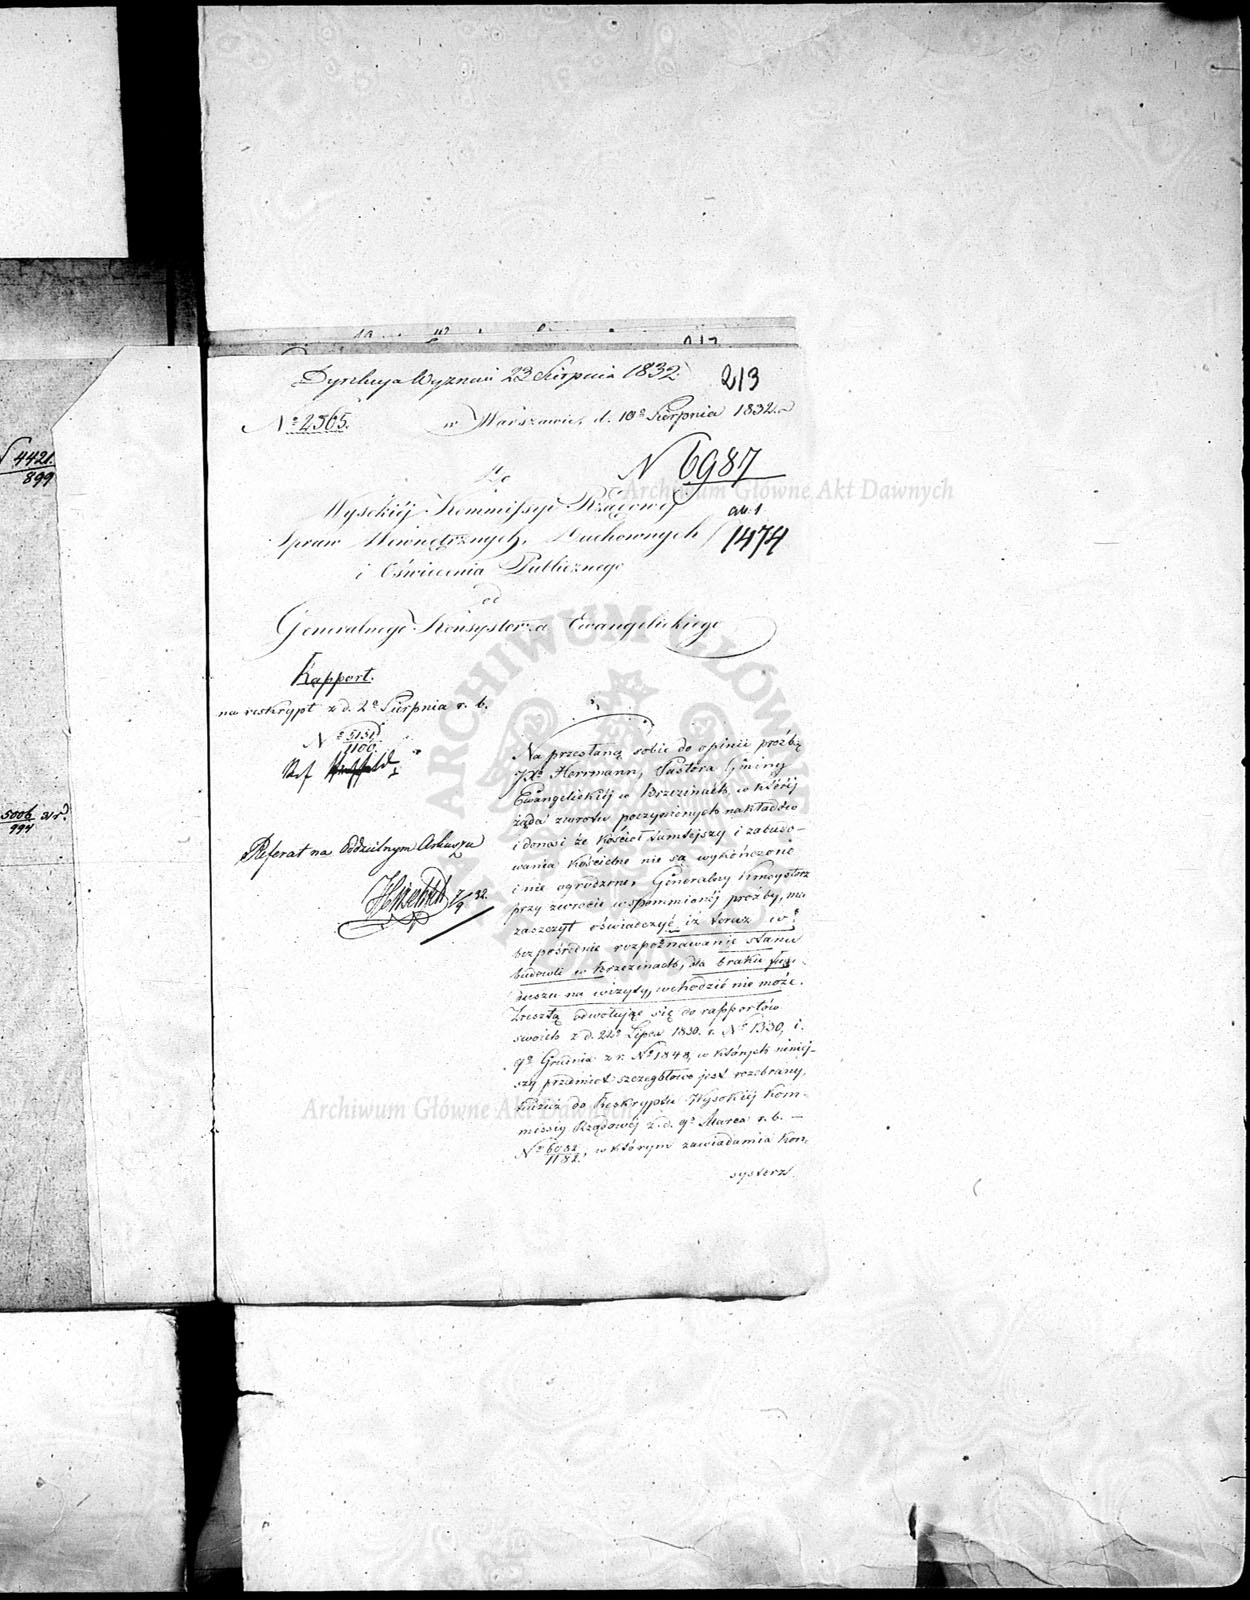 4421.
899
5006
994
Dyrekcya Wyznań 23 Sierpnia 1832.
213
No 2365.
w Warszawie, d. 10o Sierpnia 1832.
Do
N 6987
Wysokiéj Kommissyi Rządowéj
Spraw Wewnętrznych, Duchownych
1474
i Oświecenia Publicznego
od
Generalnego Konsystorza Ewangelickiego
Rapport.
na reskrypt z d. 2o Sierpnia r. b.
No 5151
1100.
Ref
Referat na Oddzielnym Arkuszu
7/9 32.
Na przesłaną sobie do opinii proźbę
JXo Herrmann, Pastora Gminy
Ewangelickiéj w Brzezinach, w któréj
żąda zwrotu poczynionych nakładów
i donosi że Kościoł tamtejszy i zabudo-
wania Kościelne nie są wykończone
i nie ogrodzone, Generalny Konsystorz
przy zwrocie wspomnionéj proźby, ma
zaszczyt oświadczyć iż teraz w
bezpośrednie rozpoznawanie stanu
budowli w Brzezinach, dla braku fun-
duszu na wizyty, wchodzić nie może.
Zresztą odwołując się do rapportów
swoich z d. 22o Lipca 1830. r. No 1330, i
9o Grudnia z. r. No 1848, w których niniej-
szy przedmiot szczegółowo jest rozebrany,
tudzież do Reskryptu Wysokiéj Kom-
missyi Rządowéj z d. 9o Marca r. b. —
No 6082
1182., w którym zawiadamia Kon-
systorz
Archiwum Główne Akt Dawnych
ARCHIWUM GŁÓWNE AKT DAWNYCH
Archiwum Główne Akt Dawnych